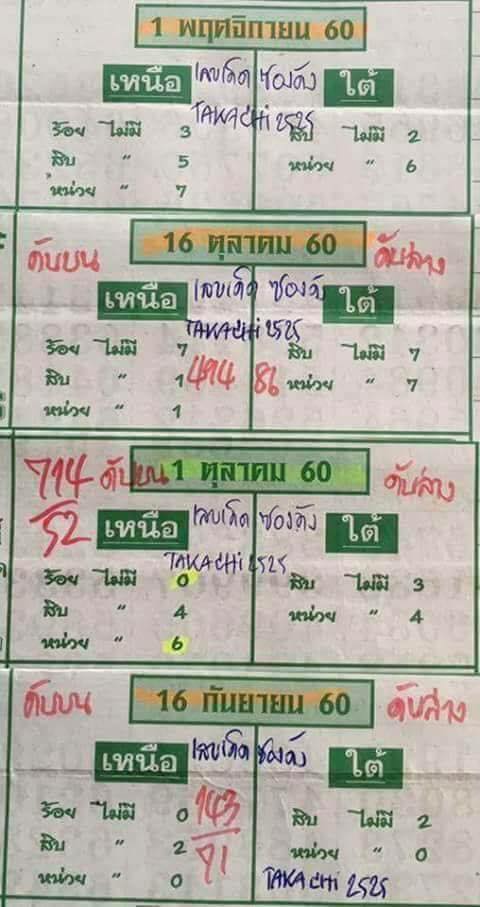 1 พฤศจิกายน 60
เหนือ เลขเด็ด ซองดัง ใต้
TAKACHI 2525
ร้อย ไม่มี 3 สิบ ไม่มี 2
สิบ " 5 หน่วย " 6
หน่วย " 7
ดับบน 16 ตุลาคม 60 ดับล่าง
เหนือ เลขเด็ด ซองดัง ใต้
TAKACHI 2525
ร้อย ไม่มี 7 สิบ ไม่มี 7
สิบ " 1 494 86 หน่วย " 7
หน่วย " 1
714 ดับบน 1 ตุลาคม 60 ดับล่าง
52 เหนือ เลขเด็ด ซองดัง ใต้
TAKACHI 2525
ร้อย ไม่มี 0 สิบ ไม่มี 3
สิบ " 4 หน่วย " 4
หน่วย " 6
ดับบน 16 กันยายน 60 ดับล่าง
เหนือ เลขเด็ด ซองดัง ใต้
ร้อย ไม่มี 0 143 สิบ ไม่มี 2
สิบ " 2 71 หน่วย " 0
หน่วย " 0 TAKACHI 2525